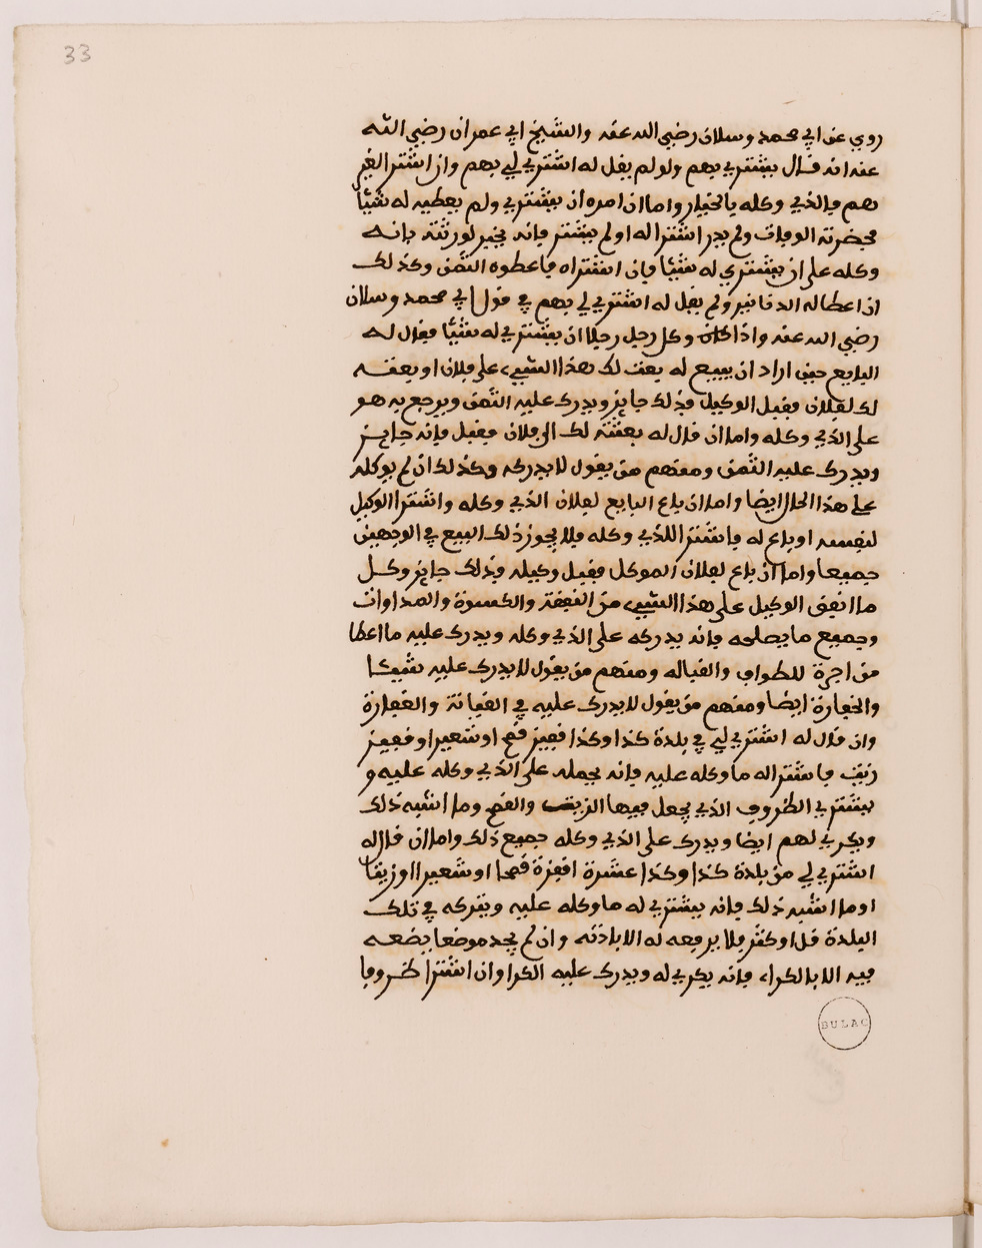 33
روي عن ابي محمد وسلان رضي الله عنه والشيخ ابي عمران رضي الله
عنه انه قال يشتري بهم ولو لم يقل له اشتري لي بهم وان اشترا لغير
هم فالذي وكله بالخيار واما ان امره ان يشتري ولم يعطيه له شيئا
فحضرته الوفات ولم يدر اشترا له او لم يشتر فانه يخير لورثته بانه
وكله على ان يشتري له شيئا فان اشتراه فاعطوه الثمن وكذلك
ان اعطا له الدنانير ولم يقل له اشتري لي بهم في قول ابي محمد وسلان
رضي الله عنه واذا كان وكل رجل رجلا ان يشتري له شيئا فقال له
البايع حين اراد ان يبيع له بعت لك هذا الشيء على فلان او بعته
لك لفلان فقبل الوكيل فذلك جايز ويدرك عليه الثمن ويرجع به هو
على الذي وكله واما ان قال له بعته لك الى فلان فقبل فانه جايز
ويدرك عليه الثمن ومنهم من يقول لا يدركه وكذلك ان لم يوكله
على هذا الحال ايضا واما ان باع البايع لفلان الذي وكله واشترا الوكيل
لنفسه او باع له فاشترا للذي وكله فلا يجوز ذلك البيع في الوجهين
جميعا واما ان باع لفلان الموكل فقبل وكيله فذلك جايز وكل
ما انفق الوكيل على هذا الشيء من النفقة والكسوة والمداوات
وجميع ما يصلحه فانه يدركه على الذي وكله ويدرك عليه ما اعطا
من اجرة للطواف والقباله ومنهم من يقول لا يدرك عليه شيئا
والخفارة ايضا ومنهم من يقول لا يدرك عليه في القبانة والغفارة
وان قال له اشتري لي في بلدة كذا وكذا قفيز قمح او شعير او قفيز
زيت فاشترا له ما وكله عليه فانه يحمله على الذي وكله عليه و
يشتري الظروف الذي يجعل فيها الزيت والقمح وما اشبه ذلك
ويكري لهم ايضا ويدرك على الذي وكله جميع ذلك واما ان قال له
اشتري لي من بلدة كذا وكذا عشرة اقفزة قمحا او شعيرا او زيتا
او ما اشبه ذلك فانه يشتري له ما وكله عليه ويتركه في تلك
البلدة قل او كثر فلا يرفعه له الا باذنه وان لم يجد موضعا يضعه
فيه الا بالكراء فانه يكري له ويدرك عليه الكرا وان اشترا ظروفا
BULAC